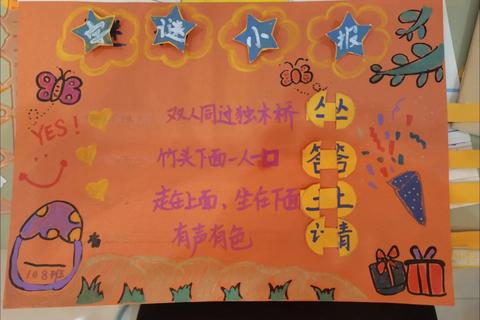 字谜小报
YES!
双人同过独木桥 丛
竹头下面一人一口 答
走在上面，坐在下面 土
有声有色 请
108班